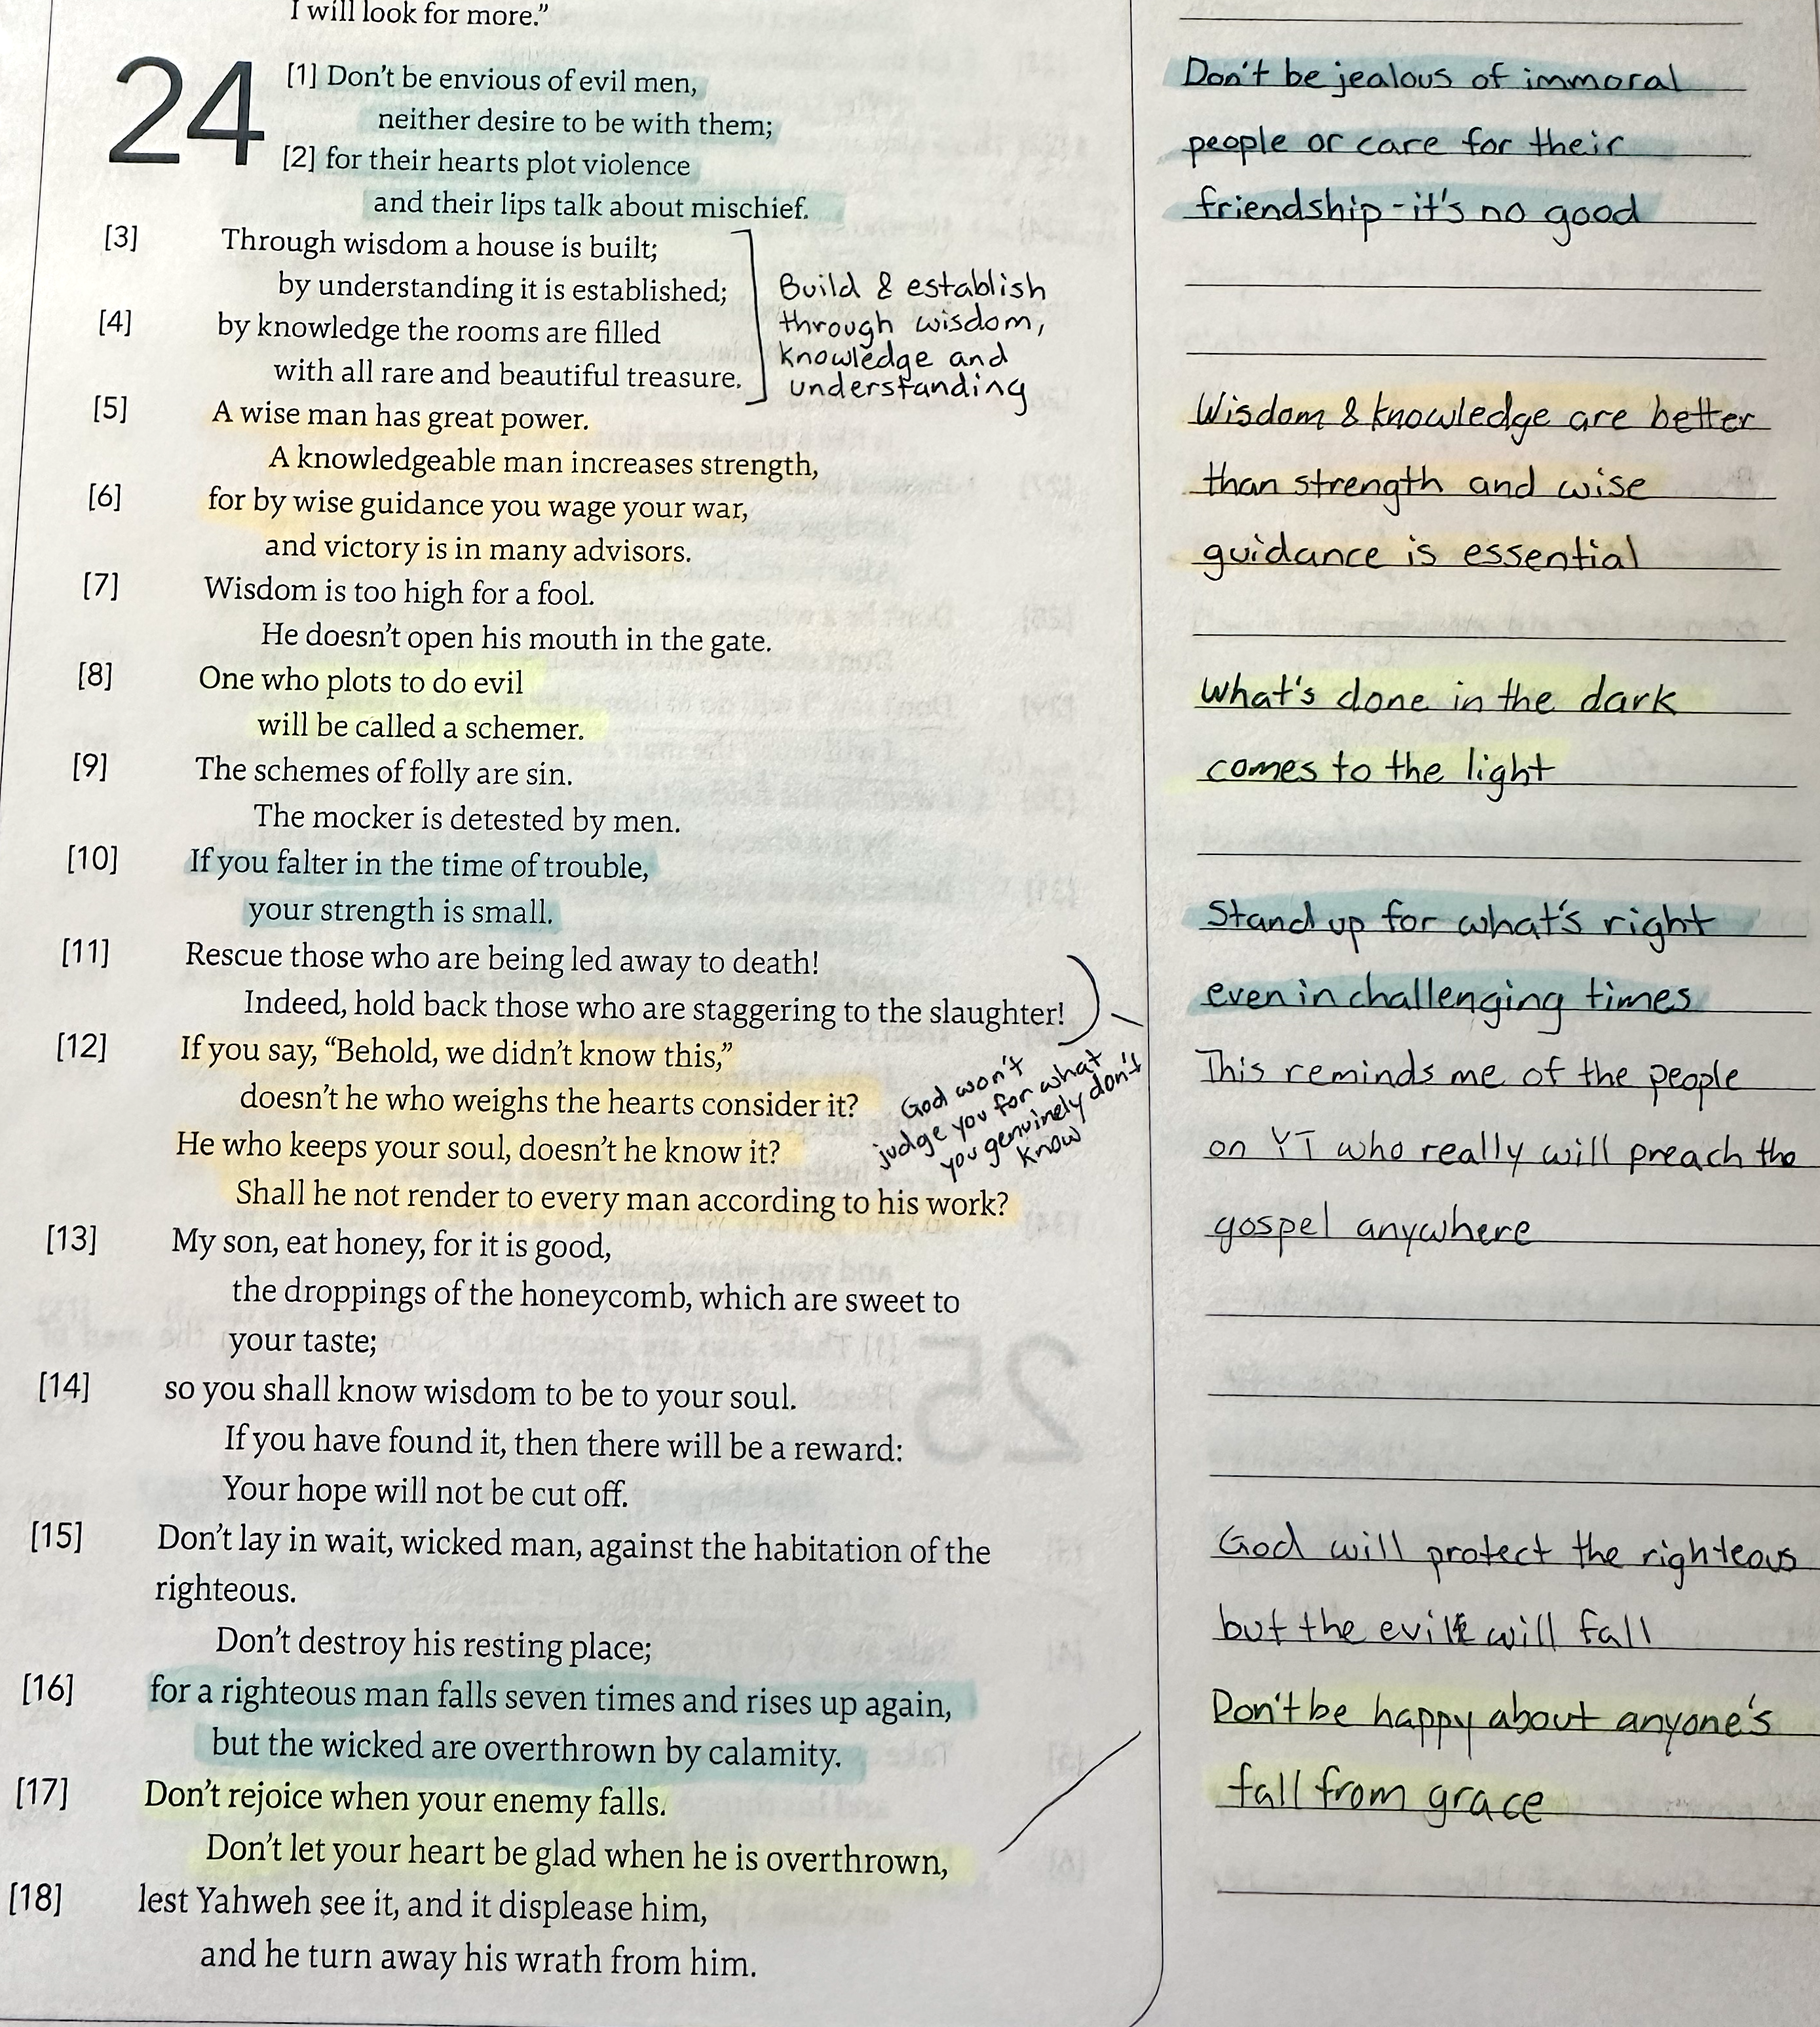 I will look for more.”
24
[1] Don’t be envious of evil men,
neither desire to be with them;
[2] for their hearts plot violence
and their lips talk about mischief.
[3] Through wisdom a house is built;
by understanding it is established;
[4] by knowledge the rooms are filled
with all rare and beautiful treasure.
Build & establish
through wisdom,
knowledge and
understanding
[5] A wise man has great power.
A knowledgeable man increases strength,
[6] for by wise guidance you wage your war,
and victory is in many advisors.
[7] Wisdom is too high for a fool.
He doesn’t open his mouth in the gate.
[8] One who plots to do evil
will be called a schemer.
[9] The schemes of folly are sin.
The mocker is detested by men.
[10] If you falter in the time of trouble,
your strength is small.
[11] Rescue those who are being led away to death!
Indeed, hold back those who are staggering to the slaughter!
[12] If you say, “Behold, we didn’t know this,”
doesn’t he who weighs the hearts consider it?
He who keeps your soul, doesn’t he know it?
Shall he not render to every man according to his work?
God won't
judge you for what
you genuinely don't
know
[13] My son, eat honey, for it is good,
the droppings of the honeycomb, which are sweet to
your taste;
[14] so you shall know wisdom to be to your soul.
If you have found it, then there will be a reward:
Your hope will not be cut off.
[15] Don’t lay in wait, wicked man, against the habitation of the
righteous.
Don’t destroy his resting place;
[16] for a righteous man falls seven times and rises up again,
but the wicked are overthrown by calamity.
[17] Don’t rejoice when your enemy falls.
Don’t let your heart be glad when he is overthrown,
[18] lest Yahweh see it, and it displease him,
and he turn away his wrath from him.
Don't be jealous of immoral
people or care for their
friendship - it's no good
Wisdom & knowledge are better
than strength and wise
guidance is essential
What's done in the dark
comes to the light
Stand up for what's right
even in challenging times
This reminds me of the people
on YT who really will preach the
gospel anywhere
God will protect the righteous
but the evil will fall
Don't be happy about anyone's
fall from grace
25